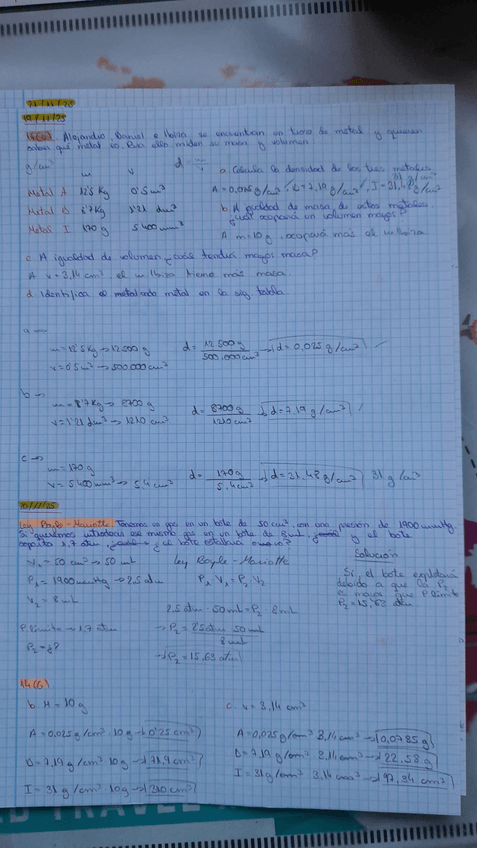 21/11/25
19/11/25
14(6) Alejandro, Daniel e Ibiza se encuentran un trozo de metal y quieren
saber qué metal es. Para ello miden su masa y volumen
g/cm³ m v d =
a. Calcula la densidad de los tres metales.
Metal A 12'5 Kg 0'5 m³ A = 0,025 g/cm³, D = 7,19 g/cm³, I = 31,48 g/cm³
Metal D 8'7 Kg 1'21 dm³ b. A igualdad de masa de estos metales
¿cuál ocupará un volumen mayor?
Metal I 170 g 5400 mm³ A m = 10 g, ocupará más el
c. A igualdad de volumen, ¿cuál tendrá mayor masa?
A v = 3,14 cm³ el tiene más masa.
d. Identifica el metal en la sig tabla
a →
m = 12'5 Kg → 12500 g d = 12 500 g / 500.000 cm³ → d = 0,025 g/cm³
v = 0'5 m³ → 500.000 cm³
b →
m = 8'7 Kg → 8700 g d = 8700 g / 1210 cm³ → d = 7,19 g/cm³
v = 1'21 dm³ → 1210 cm³
c →
m = 170 g
v = 5400 mm³ → 5,4 cm³ d = 170 g / 5,4 cm³ → d = 31,48 g/cm³ 31 g/cm³
20/11/25
Ley Boyle-Mariotte. Tenemos un gas en un bote de 50 cm³, con una presión de 1900 mmHg.
Si queremos introducir ese mismo gas en un bote de 8 ml, y el bote
soporta 1,7 atm, ¿el bote explotará o no?
V₁ = 50 cm³ → 50 ml ley Boyle-Mariotte
P₁ = 1900 mmHg → 2,5 atm P₁ V₁ = P₂ V₂
V₂ = 8 ml
2,5 atm · 50 ml = P₂ · 8 ml
P límite → 1,7 atm → P₂ = 2,5 atm · 50 ml / 8 ml
P₂ = ¿?
→ P₂ = 15,63 atm
Solución
Sí, el bote explotará
debido a que la P₂
es mayor que P límite
P₂ = 15,63 atm
14(6)
b. M = 10 g c. v = 3,14 cm³
A = 0,025 g/cm³ · 10 g → 0'25 cm³ A = 0,025 g/cm³ · 3,14 cm³ → 0,0785 g
D = 7,19 g/cm³ · 10 g → 71,9 cm³ D = 7,19 g/cm³ · 3,14 cm³ → 22,58 g
I = 31 g/cm³ · 10 g → 310 cm³ I = 31 g/cm³ · 3,14 cm³ → 97,34 g
TRAVEL